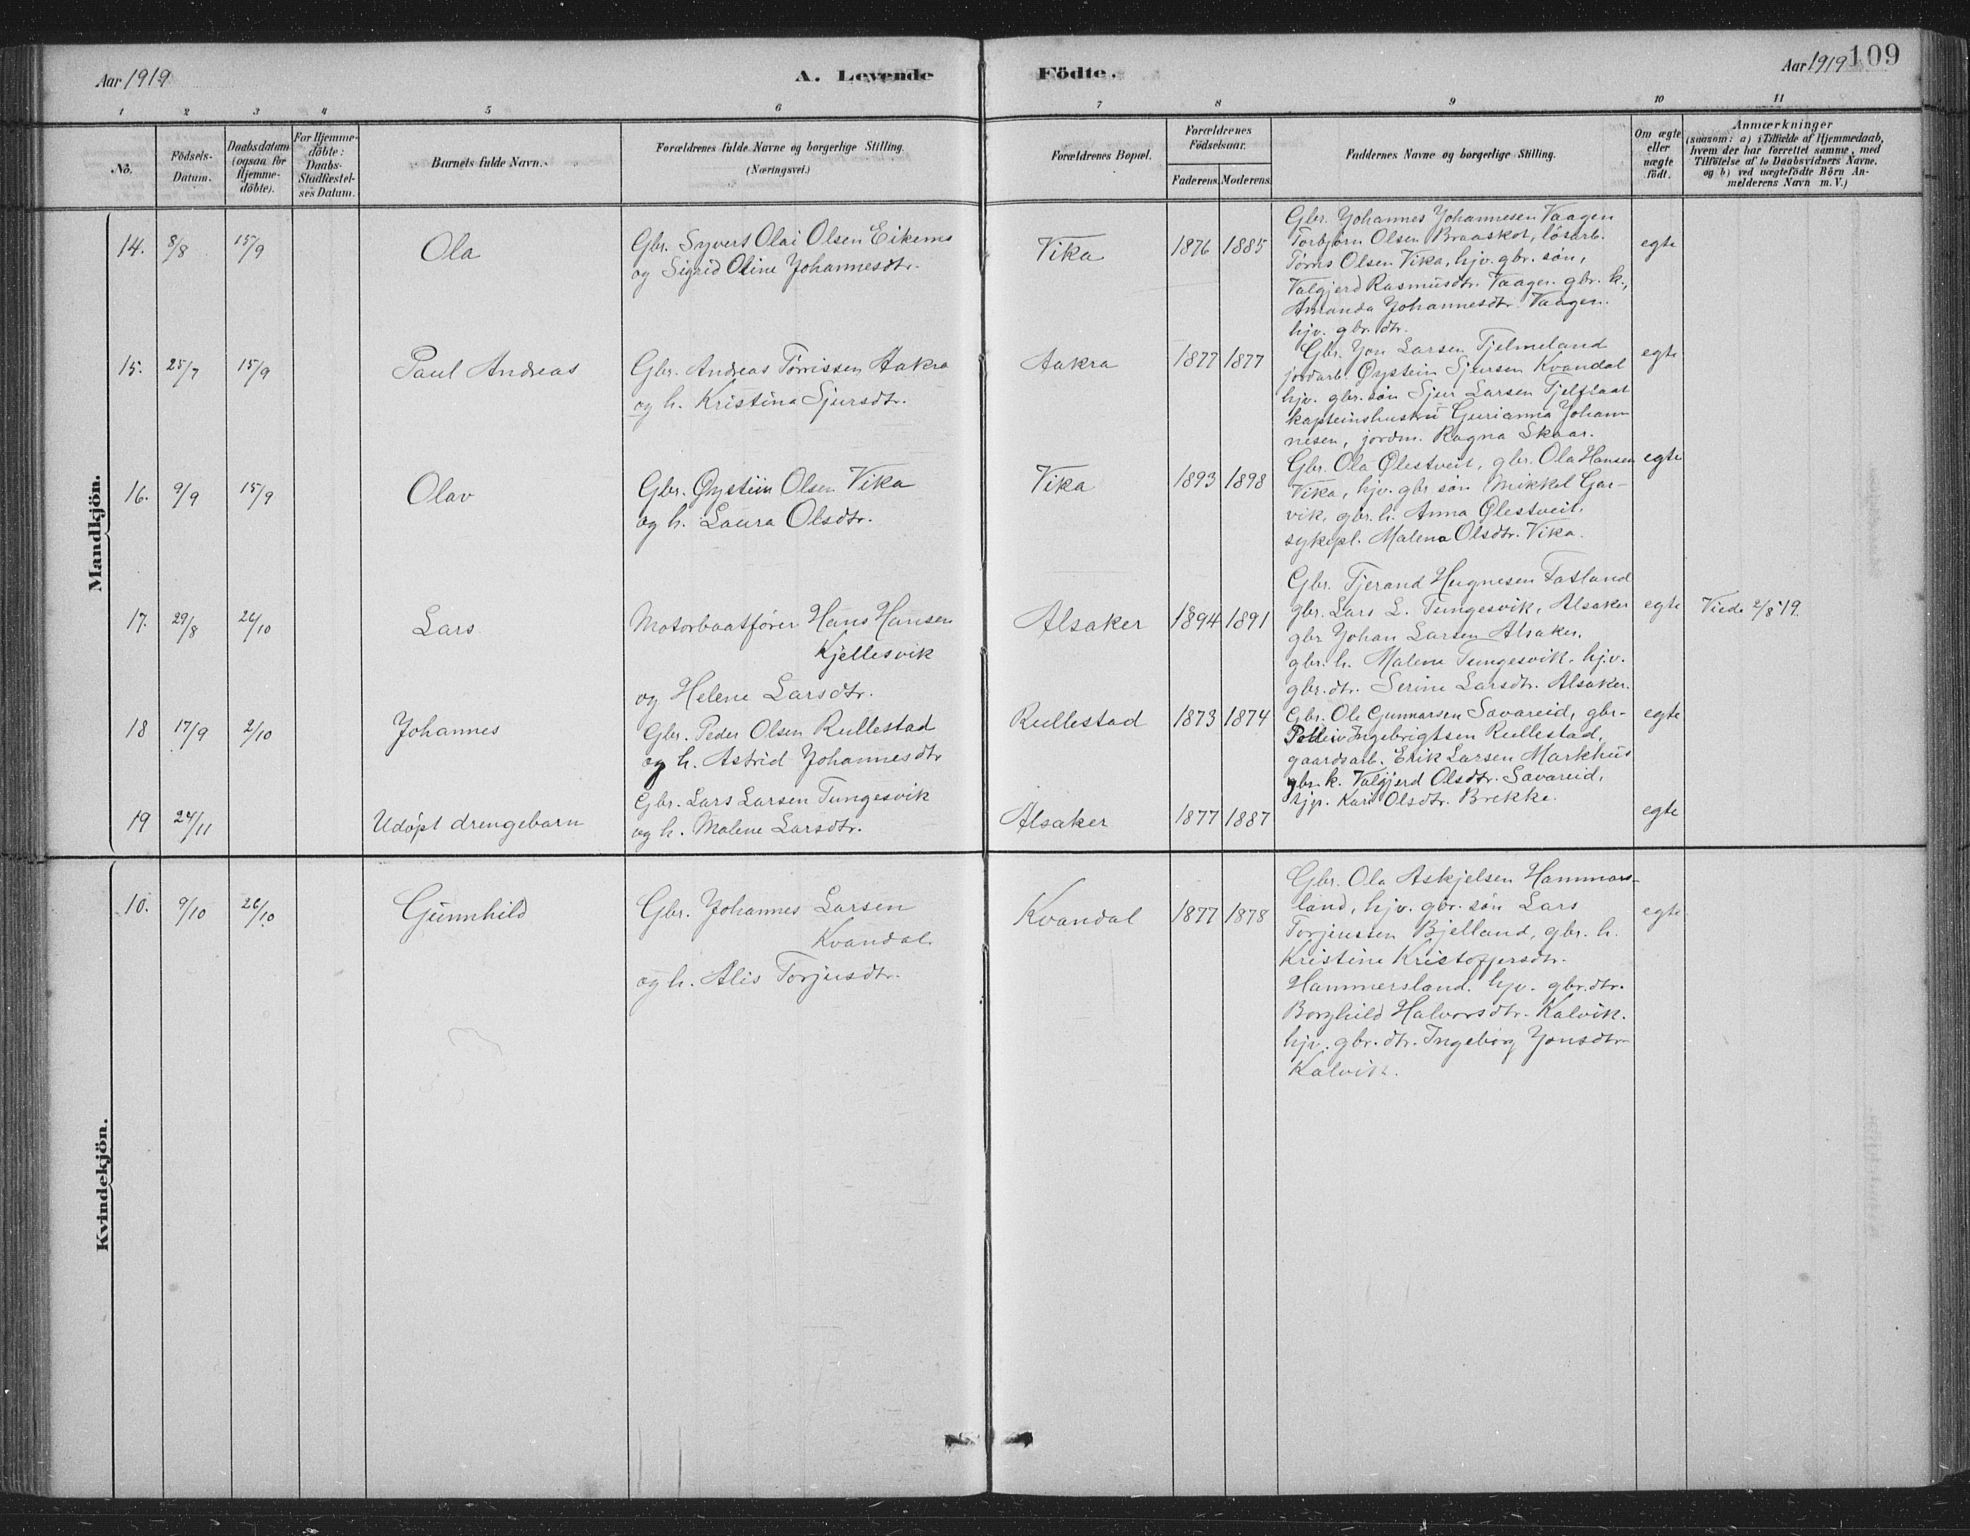 Aar 1919
A. Levende Födte.
Aar 1919
109
1 2 3 4 5 6 7 8 9 10 11
No.
Födsels-
Datum.
Daabsdatum
(ogsaa for
Hjemme-
döbte).
For Hjemme-
döbte:
Daabs-
Stadfestel-
ses Datum.
Barnets fulde Navn.
Forældrenes fulde Navne og borgerlige Stilling.
(Næringsvei.)
Forældrenes Bopæl.
Forældrenes
Födselsaar.
Faderens.
Moderens.
Faddernes Navne og borgerlige Stilling.
Om ægte
eller
uægte
födt.
Anmærkninger
(saasom: a) i Tilfælde af Hjemmedaab,
hvem der har forrettet samme, med
Tilföielse af to Daabsvidners Navne,
og b) ved uægtefödte Börn An-
melderens Navn m. V.)
Mandkjön.
14. 8/8 15/9 Ola
Gbr. Syvert Olai Olsen Eikemo
og Sigrid Oline Johannesdtr.
Vika 1876 1885
Gbr. Johannes Johannesen Vaagen
Torbjørn Olsen Braaskot, løsarb.
Tørres Olsen Vika, hjv. gbr. søn,
Valgjerd Rasmusdtr. Vaagen gbr. k.,
Amanda Johannesdtr. Vaagen.
hjv. gbr. dtr.
egte
15. 25/7 15/9 Paul Andreas
Gbr. Andreas Tørrissen Aakra
og h. Kristina Sjursdtr.
Aakra 1877 1877
Gbr. Jon Larsen Tjelmeland
jordarb. Øystein Sjursen Kvandal
hjv. gbr. søn Sjur Larsen Fjelflaat
kapteinshustru Gurianna Johan-
nesen, jordm. Ragna Skaar.
egte
16. 9/9 15/9 Olav
Gbr. Øystein Olsen Vika
og h. Laura Olsdtr.
Vika 1893 1898
Gbr. Ola Ølestveit, gbr. Ola Hansen
Vika, hjv. gbr søn Mikkel Gar-
vik, gbr. h. Anna Ølestveit,
sykepl. Malena Olsdtr. Vika.
egte
17. 29/8 26/10 Lars
Motorbaatfører Hans Hansen
Kjellesvik
og Helene Larsdtr.
Alsaker 1894 1891
Gbr. Tjerand Hognesen Fatland
gbr. Lars L. Tungesvik, Alsaker
gbr Johan Larsen Alsaker.
gbr. h. Malene Tungesvik, hjv.
gbr. dtr. Serine Larsdtr. Alsaker.
egte
Viede 2/8 19.
18 17/9 2/10 Johannes
Gbr. Peder Olsen Rullestad
og h. Astrid Johannesdtr
Rullestad 1873 1874
Gbr. Ole Gunnarsen Savareid, gbr.
Ingebrigtsen Rullestad,
gaardsarb. Erik Larsen Markhus
gbr. k. Valgjerd Olsdtr. Savareid,
Kari Olsdtr. Brekke.
egte
19 24/11 Udøpt drengebarn
Gbr. Lars Larsen Tungesvik
og h. Malene Larsdtr.
Alsaker 1877 1887
egte
Kvindekjön.
10. 9/10 26/10 Gunnhild
Gbr. Johannes Larsen
Kvandal.
og h. Alis Torjusdtr.
Kvandal 1877 1878
Gbr. Ola Askjelsen Hammers-
land, hjv. gbr. søn Lars
Torjussen Bjelland, gbr. h.
Kristine Kristoffersdtr.
Hammersland. hjv. gbr. dtr.
Borghild Halvorsdtr. Kalvik.
hjv. gbr. dtr. Ingeborg Jonsdtr
Kalvik.
egte